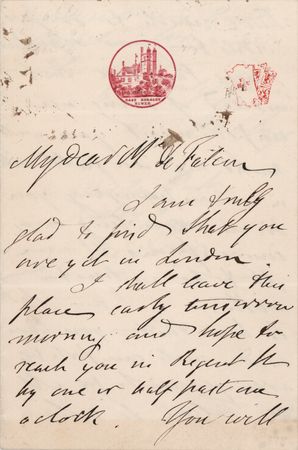 EAST HORSLEY
TOWER
My dear Mr de
I am truly
glad to find that you
are yet in London.
I shall leave this
place early tomorrow
morning and hope to
reach you in Regent St
by one or half past one
oclock. You will